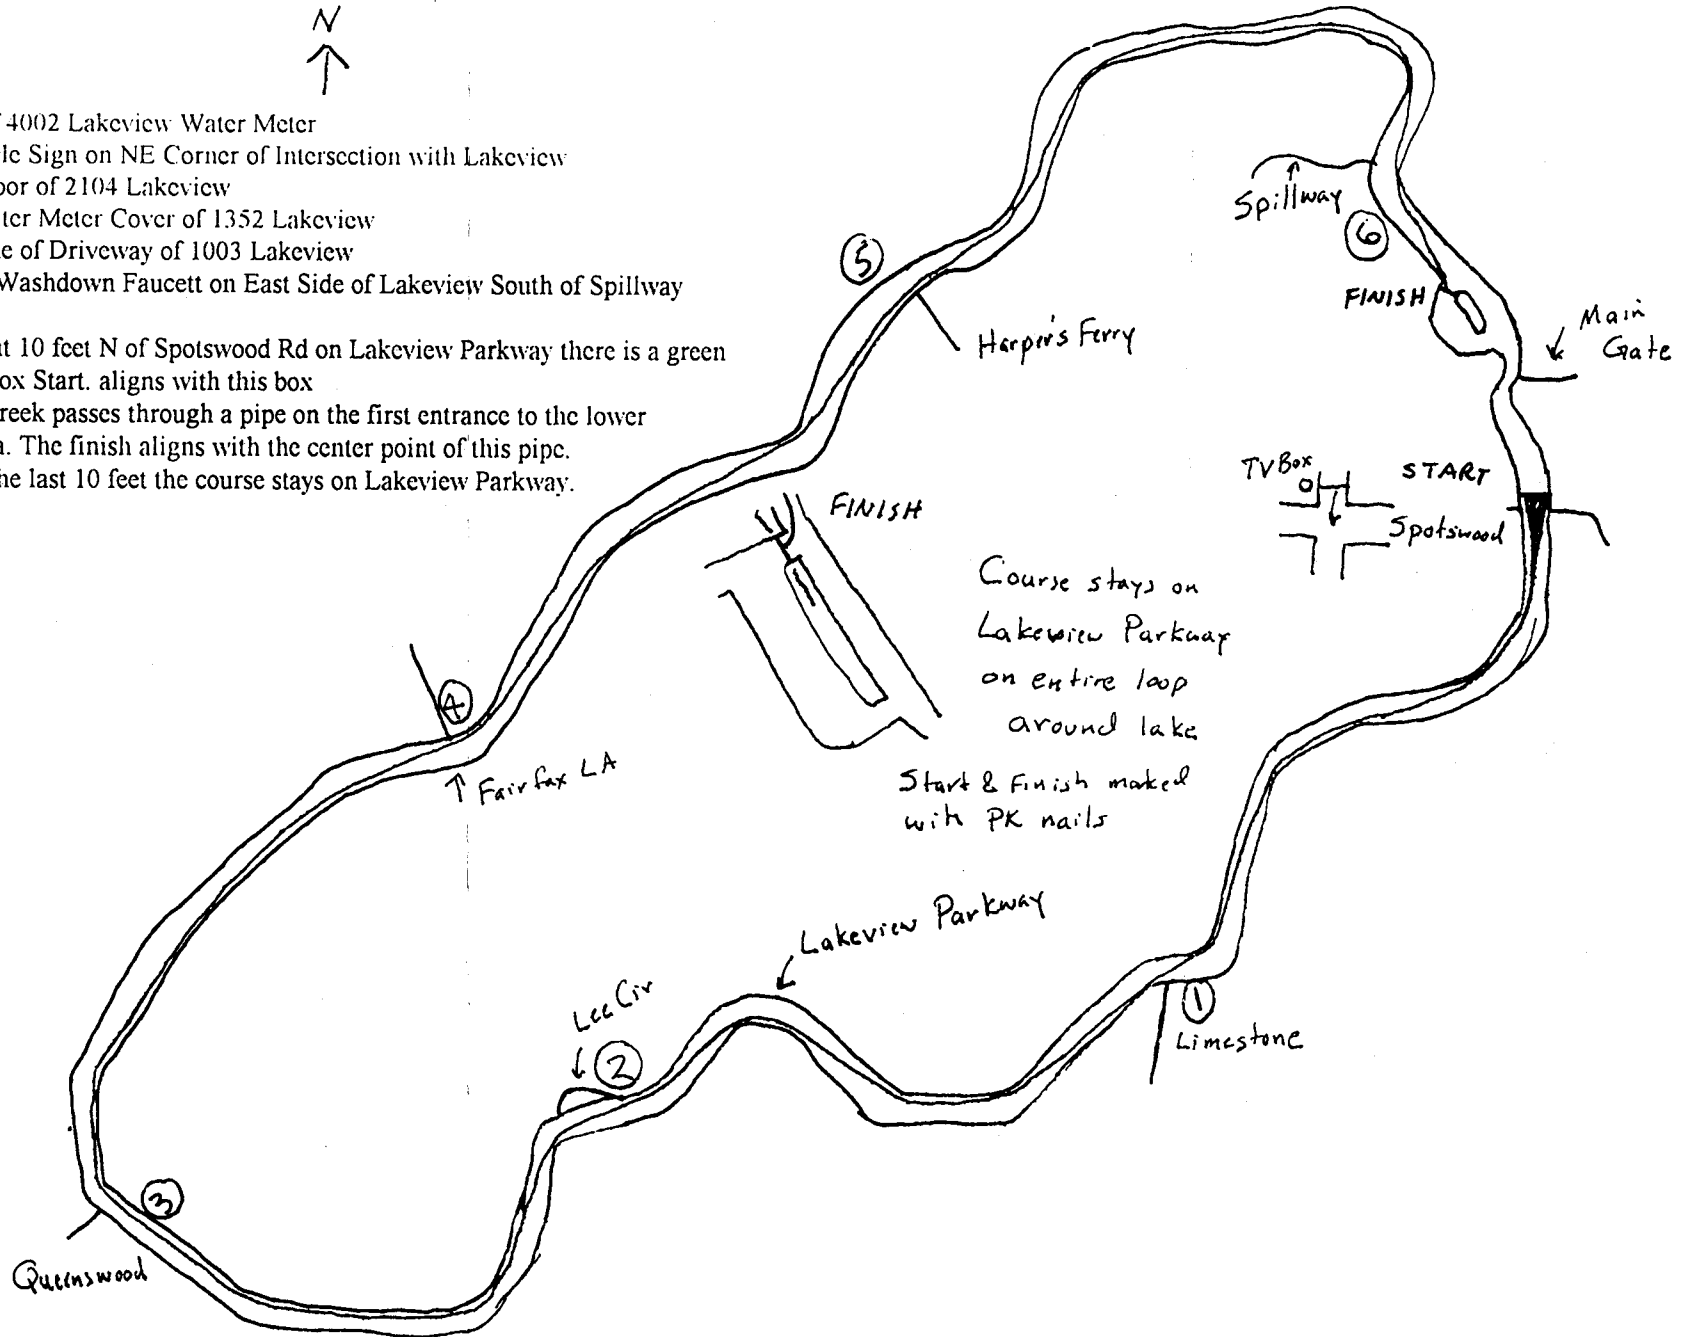 N
4002 Lakeview Water Meter
Sign on NE Corner of Intersection with Lakeview
of 2104 Lakeview
Meter Cover of 1352 Lakeview
of Driveway of 1003 Lakeview
Washdown Faucett on East Side of Lakeview South of Spillway
10 feet N of Spotswood Rd on Lakeview Parkway there is a green
Start. aligns with this box
passes through a pipe on the first entrance to the lower
The finish aligns with the center point of this pipe.
last 10 feet the course stays on Lakeview Parkway.
Spillway
6
FINISH
Main
Gate
5
Harper's Ferry
TV Box
START
Spotswood
FINISH
Course stays on
Lakeview Parkway
on entire loop
around lake
Start & Finish marked
with PK nails
4
Fairfax LA
Lakeview Parkway
Lee Cir
2
1
Limestone
3
Queenswood